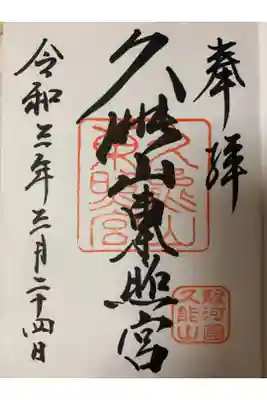 奉拝
久能山東照宮
久能山東照宮
駿河國久能山
令和三年三月二十四日